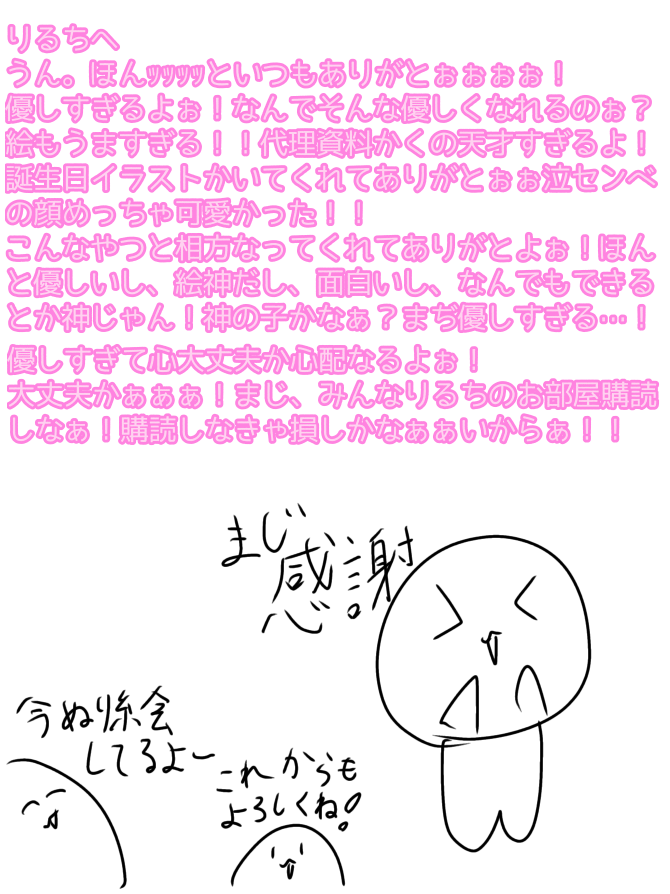 りるちへ
うん。ほんッッッッといつもありがとぉぉぉぉ！
優しすぎるよぉ！なんでそんな優しくなれるのぉ？
絵もうますぎる！！代理資料かくの天才すぎるよ！
誕生日イラストかいてくれてありがとぉぉ泣センベ
の顔めっちゃ可愛かった！！
こんなやつと相方なってくれてありがとよぉ！ほん
と優しいし、絵神だし、面白いし、なんでもできる
とか神じゃん！神の子かなぁ？まぢ優しすぎる…！
優しすぎて心大丈夫か心配なるよぉ！
大丈夫かぁぁぁ！まじ、みんなりるちのお部屋購読
しなぁ！購読しなきゃ損しかなぁぁいからぁ！！
まじ
感謝
今ぬり絵
してるよー
これからも
よろしくね！